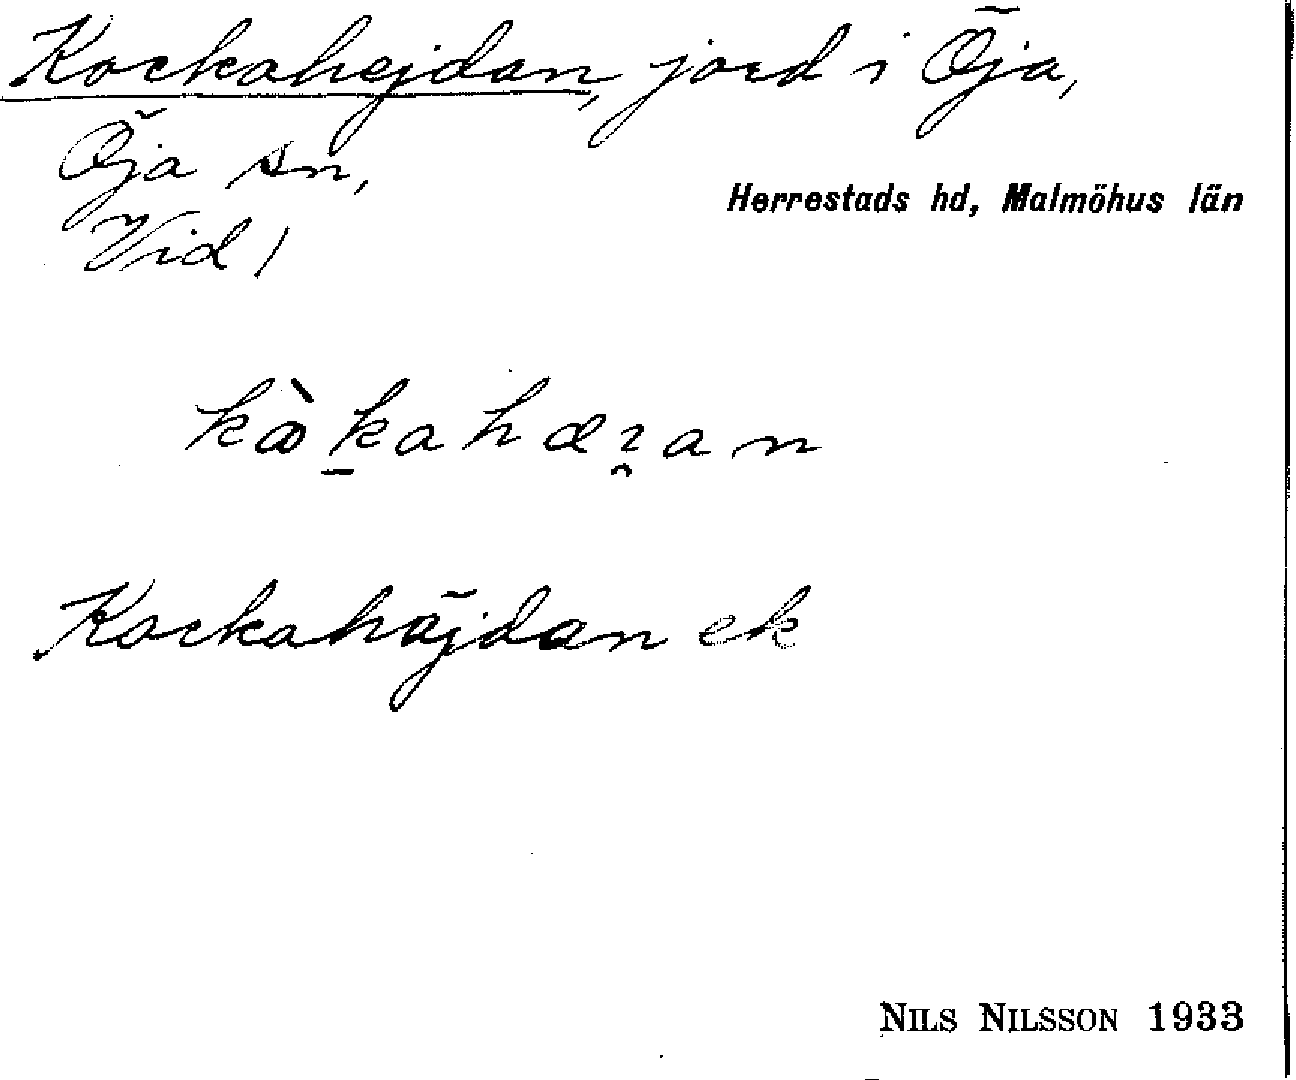 Kockahejdan, jord i Öja,
Öja sn,
Herrestads hd, Malmöhus län
Vid 1
Kockahäjdan ek
NILS NILSSON 1933